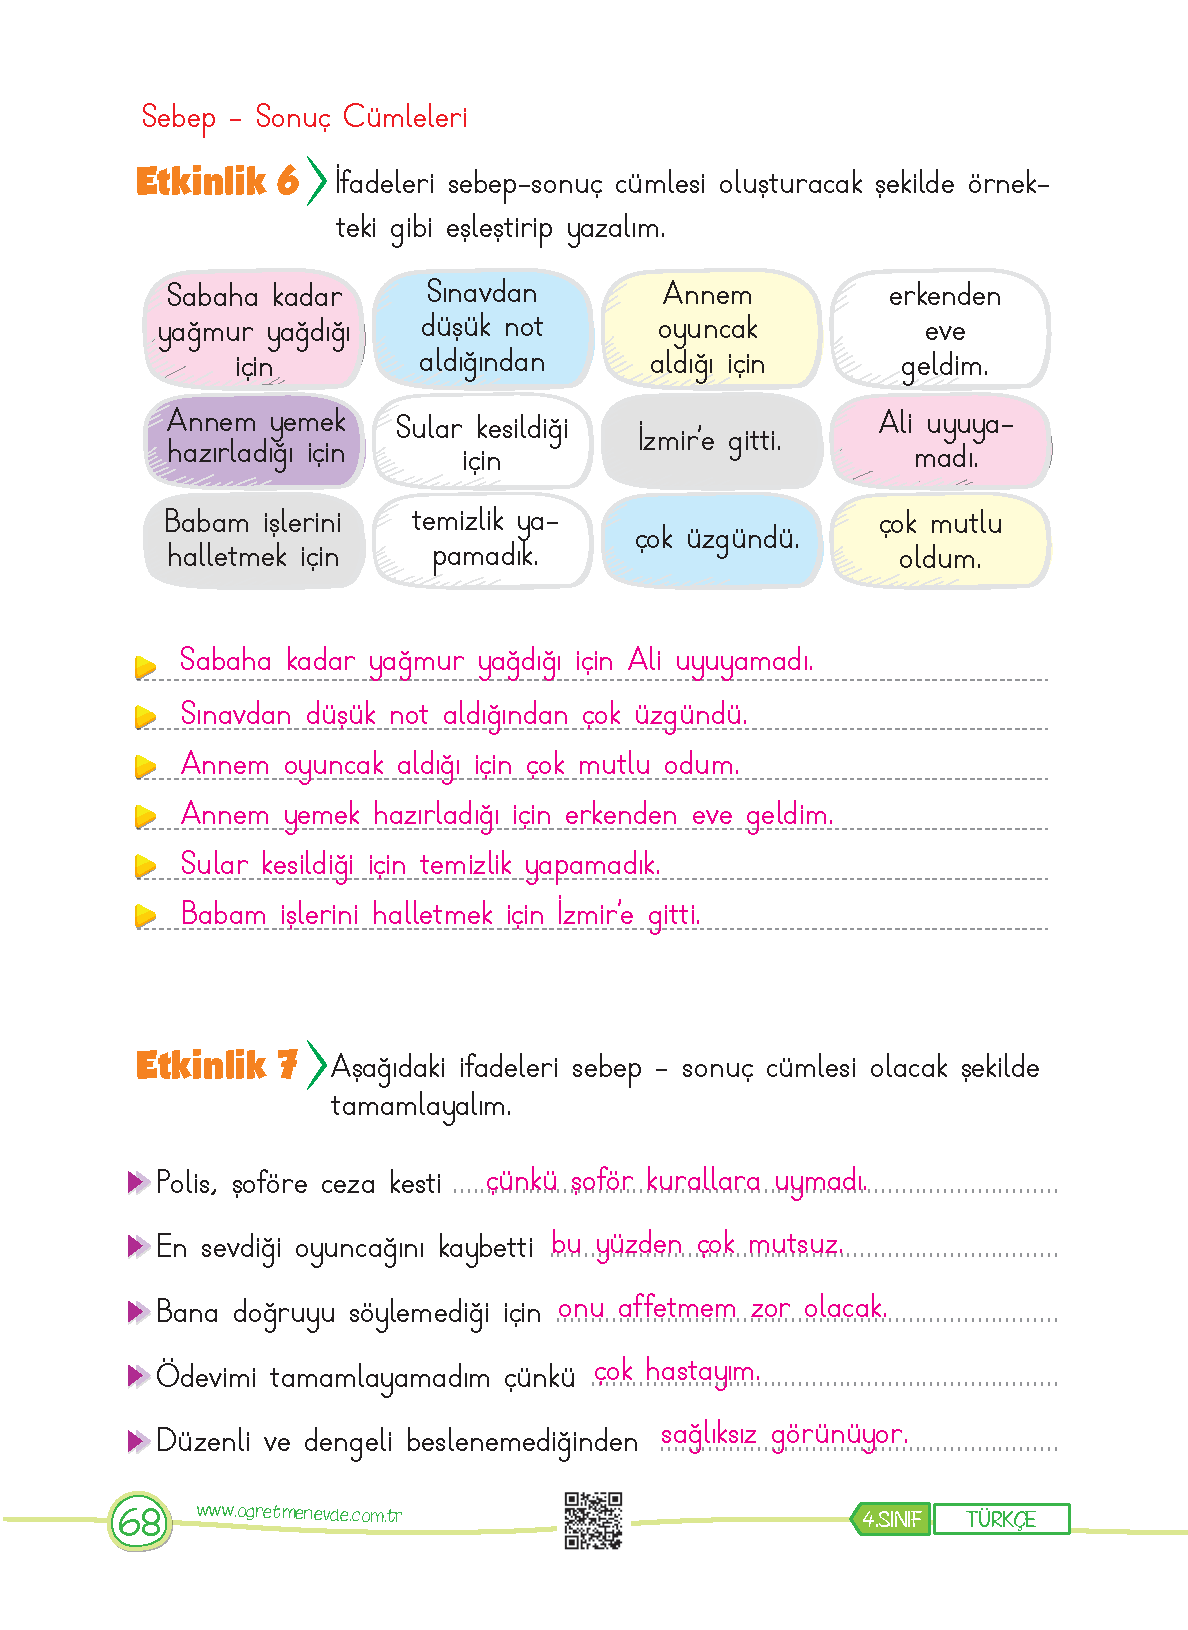 Sebep - Sonuç Cümleleri
Etkinlik 6 İfadeleri sebep-sonuç cümlesi oluşturacak şekilde örnek-
teki gibi eşleştirip yazalım.
Sabaha kadar
yağmur yağdığı
için
Sınavdan
düşük not
aldığından
Annem
oyuncak
aldığı için
erkenden
eve
geldim.
Annem yemek
hazırladığı için
Sular kesildiği
için
İzmir'e gitti.
Ali uyuya-
madı.
Babam işlerini
halletmek için
temizlik ya-
pamadık.
çok üzgündü.
çok mutlu
oldum.
Sabaha kadar yağmur yağdığı için Ali uyuyamadı.
Sınavdan düşük not aldığından çok üzgündü.
Annem oyuncak aldığı için çok mutlu odum.
Annem yemek hazırladığı için erkenden eve geldim.
Sular kesildiği için temizlik yapamadık.
Babam işlerini halletmek için İzmir'e gitti.
Etkinlik 7 Aşağıdaki ifadeleri sebep - sonuç cümlesi olacak şekilde
tamamlayalım.
Polis, şoföre ceza kesti çünkü şoför kurallara uymadı.
En sevdiği oyuncağını kaybetti bu yüzden çok mutsuz.
Bana doğruyu söylemediği için onu affetmem zor olacak.
Ödevimi tamamlayamadım çünkü çok hastayım.
Düzenli ve dengeli beslenemediğinden sağlıksız görünüyor.
68 www.ogretmenevde.com.tr 4.SINIF TÜRKÇE